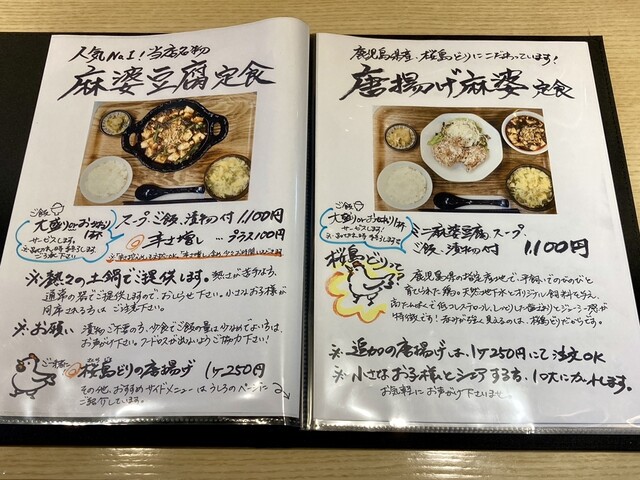 人気No.1！当店名物
麻婆豆腐定食
ご飯
大盛りorおかわり1杯
サービスします。
スープ、ご飯、漬物付 1,100円
辛さ増し … プラス100円
※熱々の土鍋でご提供します。熱さが苦手な方、
通常の器でご提供しますので、おしらせ下さい。小さなお子様が
同席される方はご注意下さい。
※お願い 漬物ご不要の方、少食でご飯の量は少なめでよい方は、
お声がけ下さい。フードロスが出ないようご協力下さい！
桜島どりの唐揚げ 1ヶ250円
その他、おすすめサイドメニューはうしろのページに
ご紹介しています。
鹿児島県産、桜島どりにこだわっています！
唐揚げ麻婆定食
ご飯
大盛りorおかわり1杯
サービスします。
ミニ麻婆豆腐、スープ、
ご飯、漬物付 1,100円
桜島どりって
鹿児島県の指定農場で、平飼いでのびのびと
育じられた鶏。天然地下水とオリジナル飼料を与え、
高たんぱくで低コレステロール。しっとりした歯ざわりとジューシー感が
特徴です！赤みが強く見えるのは、桜島どりだからです。
※追加の唐揚げは、1ヶ250円にて注文OK
※小さなお子様とシェアする方、1口大にカットします。
お気軽にお声がけ下さいませ。